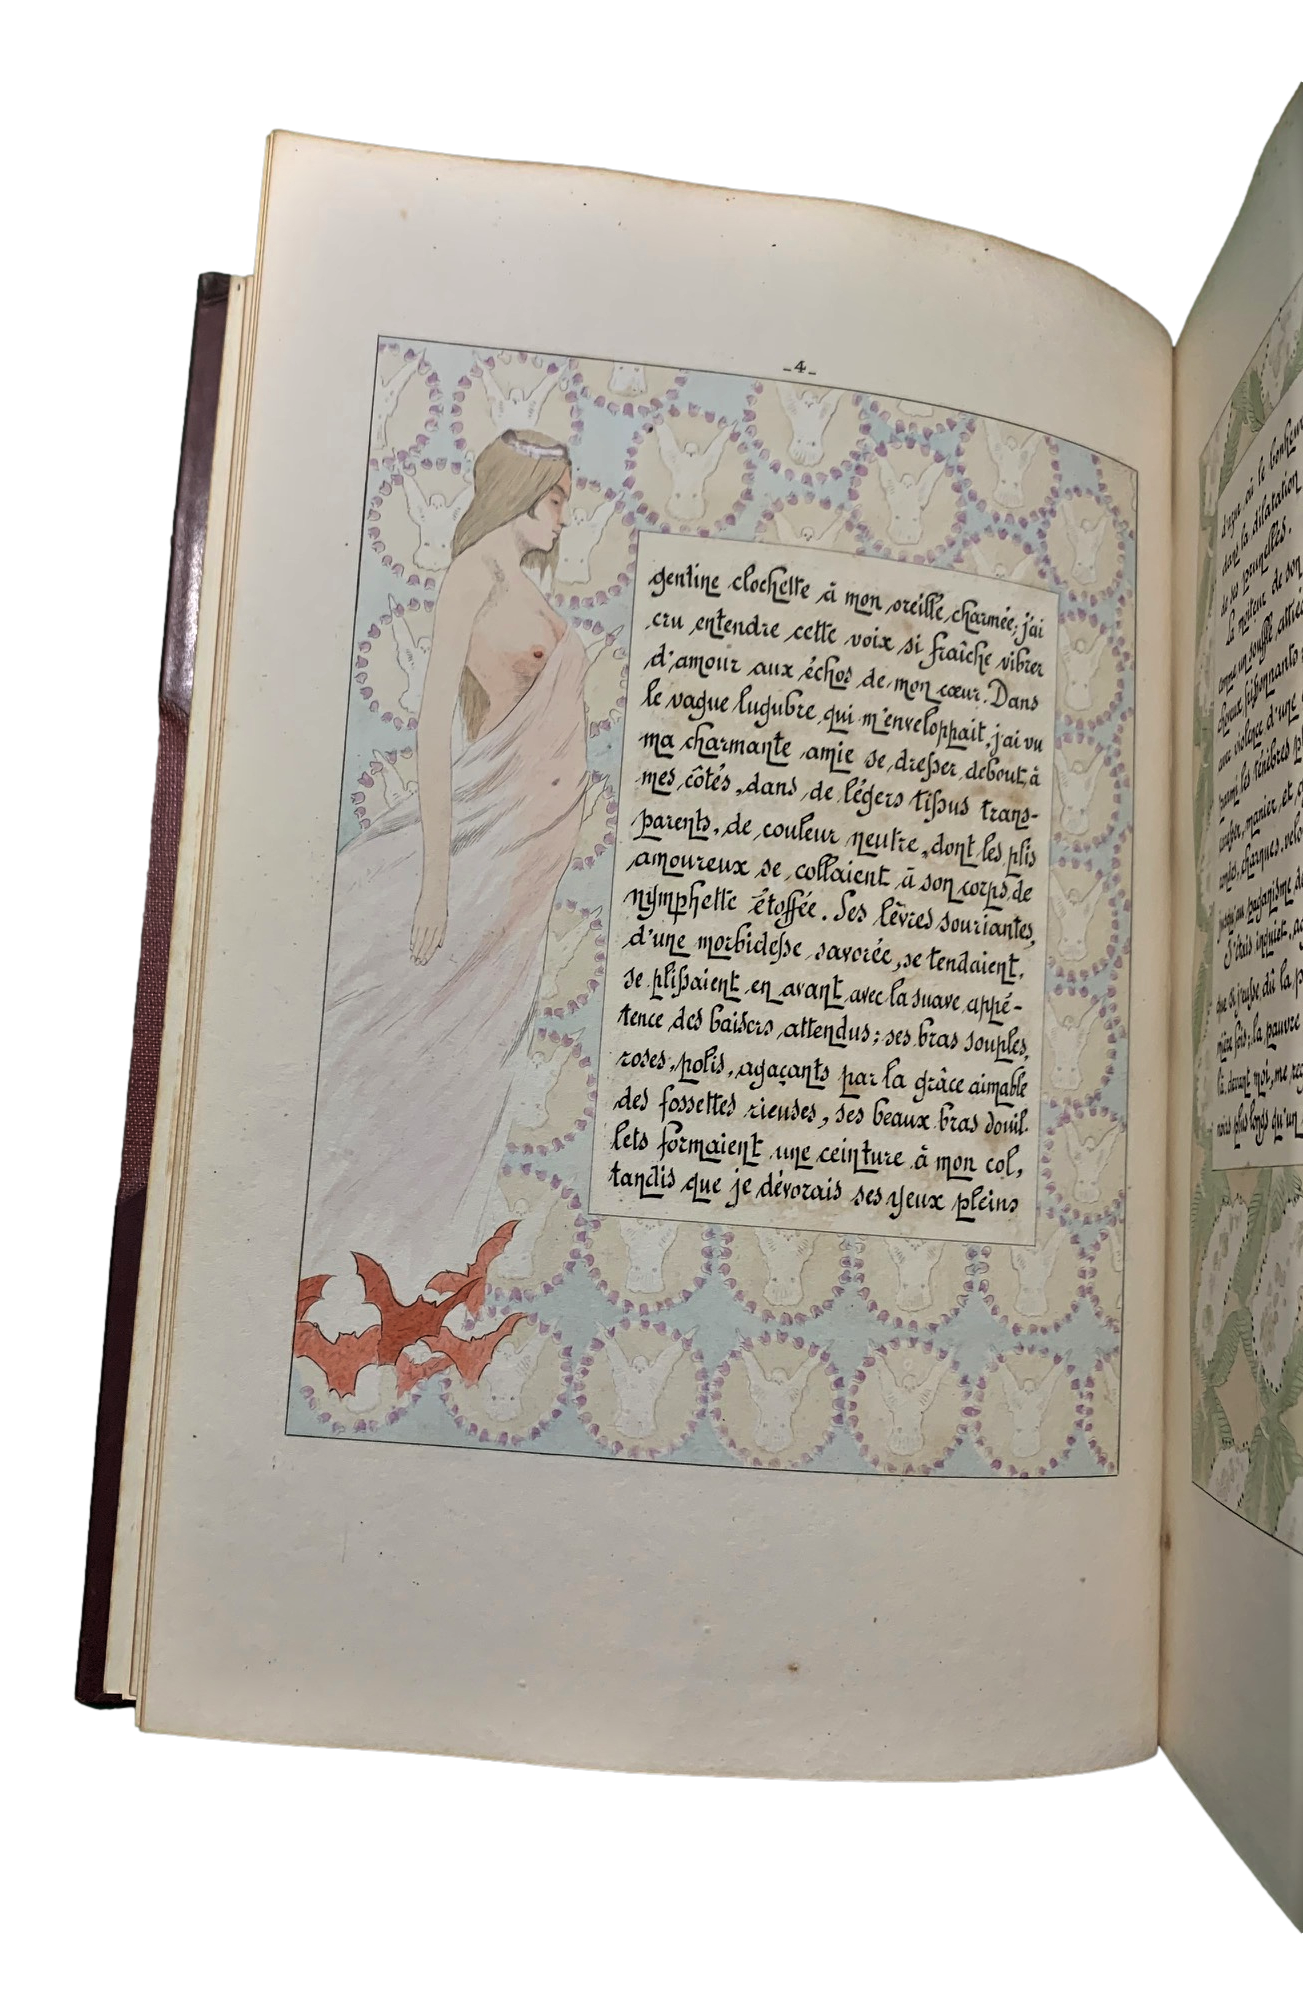 -4-
gentine clochette à mon oreille charmée; j'ai
cru entendre cette voix si fraîche vibrer
d'amour aux échos de mon cœur. Dans
le vague lugubre qui m'enveloppait, j'ai vu
ma charmante amie se dresser debout, à
mes côtés, dans de légers tissus trans-
parents, de couleur neutre, dont les plis
amoureux se collaient à son corps de
nymphette étoffée. Ses lèvres souriantes,
d'une morbidesse savorée, se tendaient,
se plissaient en avant avec la suave appé-
tence des baisers attendus; ses bras souples,
roses, polis, agaçants par la grâce aimable
des fossettes rieuses, ses beaux bras douil-
lets formaient une ceinture à mon col,
tandis que je dévorais ses yeux pleins
d'azur où le bonheur
dans la dilatation
de ses prunelles.
La moiteur de son
comme un souffle
cheveux
avec violence d'une
parmi les ténèbres
manier, et
charques,
paganisme de
J'étais inquiet,
que si j'eusse dû la
mière fois; la pauvre
là, devant moi, me
noirs plus longs qu'un